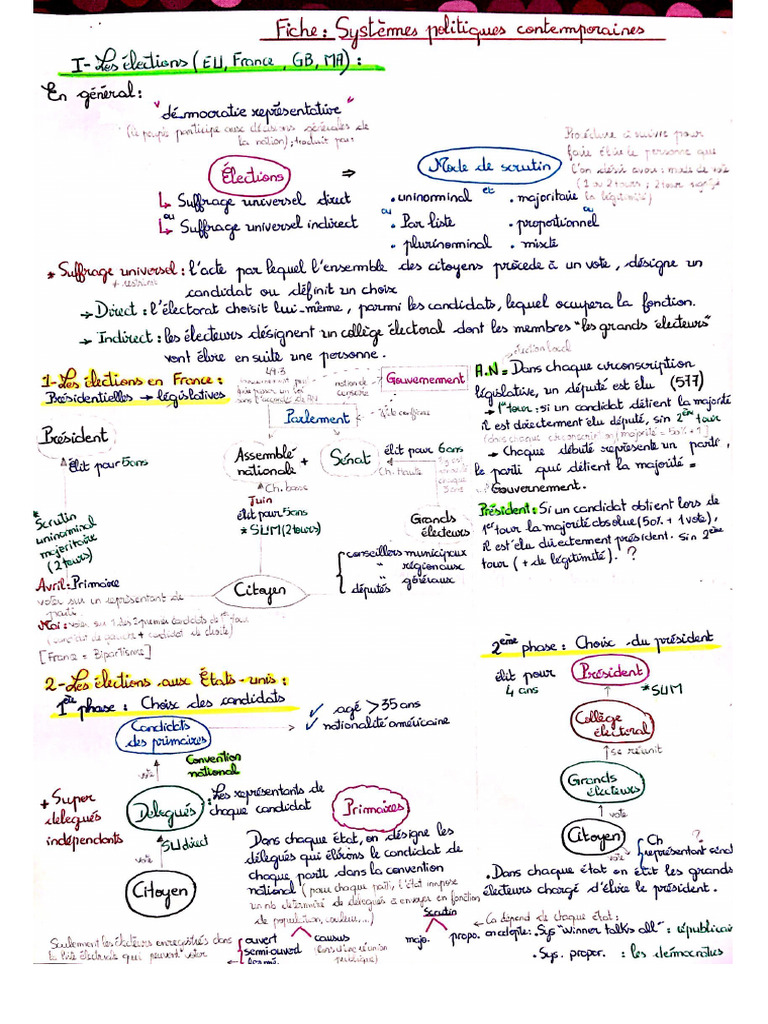 Fiche : Systèmes politiques contemporaines
I- Les élections ( EU, France , GB, MA) :
En général :
"démocratie représentative"
(le peuple participe aux décisions générales de
la nation) ; traduit par
Élections
⇒
Mode de scrutin
Procédure à suivre pour
faire élire la personne que
l'on désire avoir : mode de vote
(1 ou 2 tours ; 2 tour
la légitimité)
↳ Suffrage universel direct
ou
↳ Suffrage universel indirect
• uninominal et • majoritaire
ou ou
• Par liste • proportionnel
• plurinominal • mixte
* Suffrage universel : l'acte par lequel l'ensemble des citoyens procède à un vote , désigne un
candidat ou définit un choix
→ Direct : l'électorat choisit lui-même , parmi les candidats, lequel occupera la fonction.
→ Indirect : les électeurs désignent un collège électoral dont les membres "les grands électeurs"
vont élire en suite une personne.
1- Les élections en France :
Présidentielles → législatives
49.3
notion de
censure
Gouvernement
Parlement
Président
élit pour 5 ans
Assemblé
nationale
+
Sénat
élit pour 6 ans
Ch. Haute
Ch. basse
Juin
élit pour 5 ans
* SUM (2 tours)
* Scrutin
uninominal
majoritaire
(2 tours)
Grands
électeurs
Avril : Primaire
voter sur un représentant de
parti
Mai : voter sur 1 des 2 premier candidats de 1er tour
(candidat de gauche + candidat de droite)
[France = Bipartisme]
Citoyen
conseillers municipaux
" régionaux
députés " généraux
élection local
A.N = Dans chaque circonscription
législative, un député est élu (577)
→ 1er tour : si un candidat détient la majorité
il est directement élu député, sin 2ème tour
(dans chaque circonscription majorité = 50% + 1)
→ Chaque débuté représente un parti ,
le parti qui détient la majorité =
Gouvernement.
Président : Si un candidat obtient lors de
1er tour la majorité absolue (50% + 1 vote),
il est élu directement président. sin 2ème
tour (+ de légitimité). ?
2- Les élections aux États-unis :
1ère phase : Choix des candidats
Candidats
des primaires
✓ agé > 35 ans
✓ nationalité américaine
vote
Convention
national
+ Super
delegués
indépendants
Delegués
: Les représentants de
chaque candidat
Primaires
SU direct
vote
Citoyen
Dans chaque état, on désigne les
délégués qui élirons le candidat de
chaque parti dans la convention
national (pour chaque parti, l'état impose
un nb determiné de délegués à envoyer en fonction
de population, couleur,...)
Seulement les électeurs enregistrés dans
la liste électorale qui peuvent voter
ouvert
semi-ouvert
fermé
causus
Scrutin
majo. propo.
2ème phase : Choix du président
élit pour
4 ans
Président
* SUM
Collège
électoral
se réunit
Grands
électeurs
vote
Citoyen
vote
Ch ?
représentant
sénat
• Dans chaque état on élit les grands
électeurs chargé d'élire le président.
← Ca dépend de chaque état :
on adopte : . Sys "winner talks all" : républicain
. Sys. propor. : les démocrates